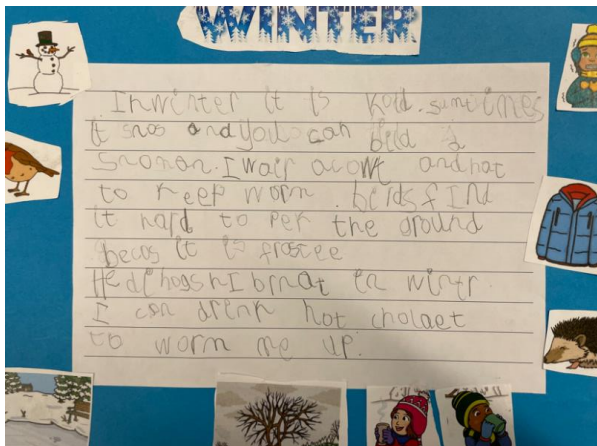 WINTER
In winter it is kold. sumtimes
it snos and you can bild a
snoman. I wair a cowt and hat
to keep worm. birds find
it hard to pek the ground
becos it is frostee
Hedlhogs hIbrnat in wintr.
I can drink hot cholaet
to worm me up.